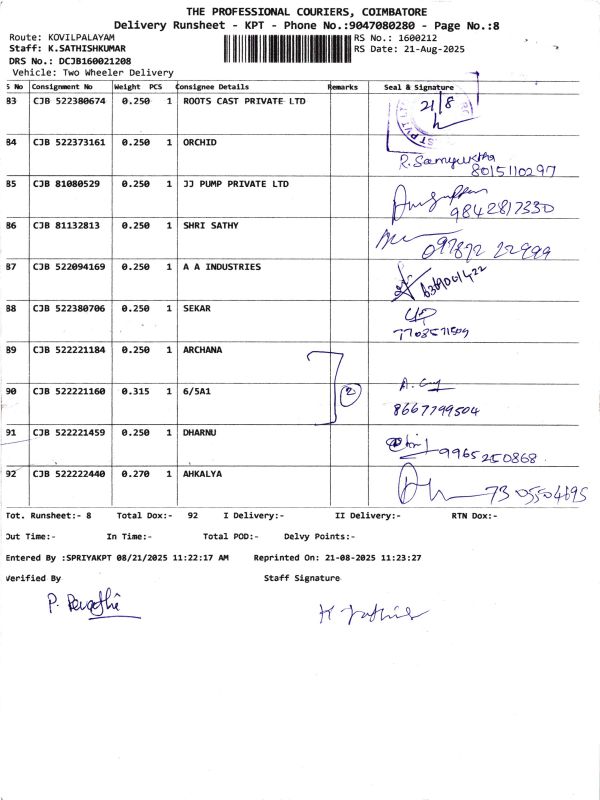 THE PROFESSIONAL COURIERS, COIMBATORE
Delivery Runsheet - KPT - Phone No.:9047080280 - Page No.:8
Route: KOVILPALAYAM RS No.: 1600212
Staff: K.SATHISHKUMAR RS Date: 21-Aug-2025
DRS No.: DCJB160021208
Vehicle: Two Wheeler Delivery
S No Consignment No Weight PCS Consignee Details Remarks Seal & Signature
83 CJB 522380674 0.250 1 ROOTS CAST PRIVATE LTD 21/8
84 CJB 522373161 0.250 1 ORCHID R. Samyuktha
8015110297
85 CJB 81080529 0.250 1 JJ PUMP PRIVATE LTD
9842817330
86 CJB 81132813 0.250 1 SHRI SATHY
097872 22999
87 CJB 522094169 0.250 1 A A INDUSTRIES
88 CJB 522380706 0.250 1 SEKAR
89 CJB 522221184 0.250 1 ARCHANA
90 CJB 522221160 0.315 1 6/5A1 2
8667799504
91 CJB 522221459 0.250 1 DHARNU
9965250868
92 CJB 522222440 0.270 1 AHKALYA 7305504695
Tot. Runsheet:- 8 Total Dox:- 92 I Delivery:- II Delivery:- RTN Dox:-
Out Time:- In Time:- Total POD:- Delvy Points:-
Entered By :SPRIYAKPT 08/21/2025 11:22:17 AM Reprinted On: 21-08-2025 11:23:27
Verified By Staff Signature